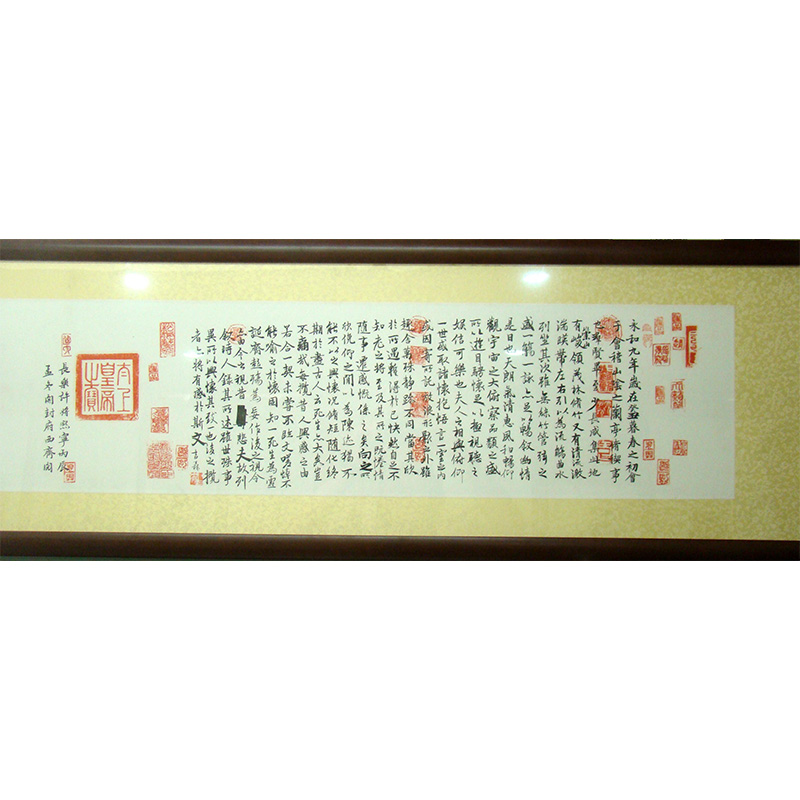 永和九年歲在癸丑暮春之初會
于會稽山陰之蘭亭脩稧事
也羣賢畢至少長咸集此地
有崇山峻領茂林脩竹又有清流激
湍暎帶左右引以為流觴曲水
列坐其次雖無絲竹管弦之
盛一觴一詠亦足以暢敘幽情
是日也天朗氣清惠風和暢仰
觀宇宙之大俯察品類之盛
所以遊目騁懷足以極視聽之
娛信可樂也夫人之相與俯仰
一世或取諸懷抱悟言一室之內
或因寄所託放浪形骸之外雖
趣舍萬殊靜躁不同當其欣
於所遇蹔得於己怏然自足不
知老之將至及其所之既惓情
隨事遷感慨係之矣向之所
欣俛仰之間以為陳迹猶不
能不以之興懷況脩短隨化終
期於盡古人云死生亦大矣豈
不痛哉每攬昔人興感之由
若合一契未嘗不臨文嗟悼不
能喻之於懷固知一死生為虛
誕齊彭殤為妄作後之視今
亦由今之視昔悲夫故列
敘時人錄其所述雖世殊事
異所以興懷其致一也後之攬
者亦將有感於斯文
太上皇帝之寶
長樂許將熙寧丙辰
孟冬開封府西齋閱